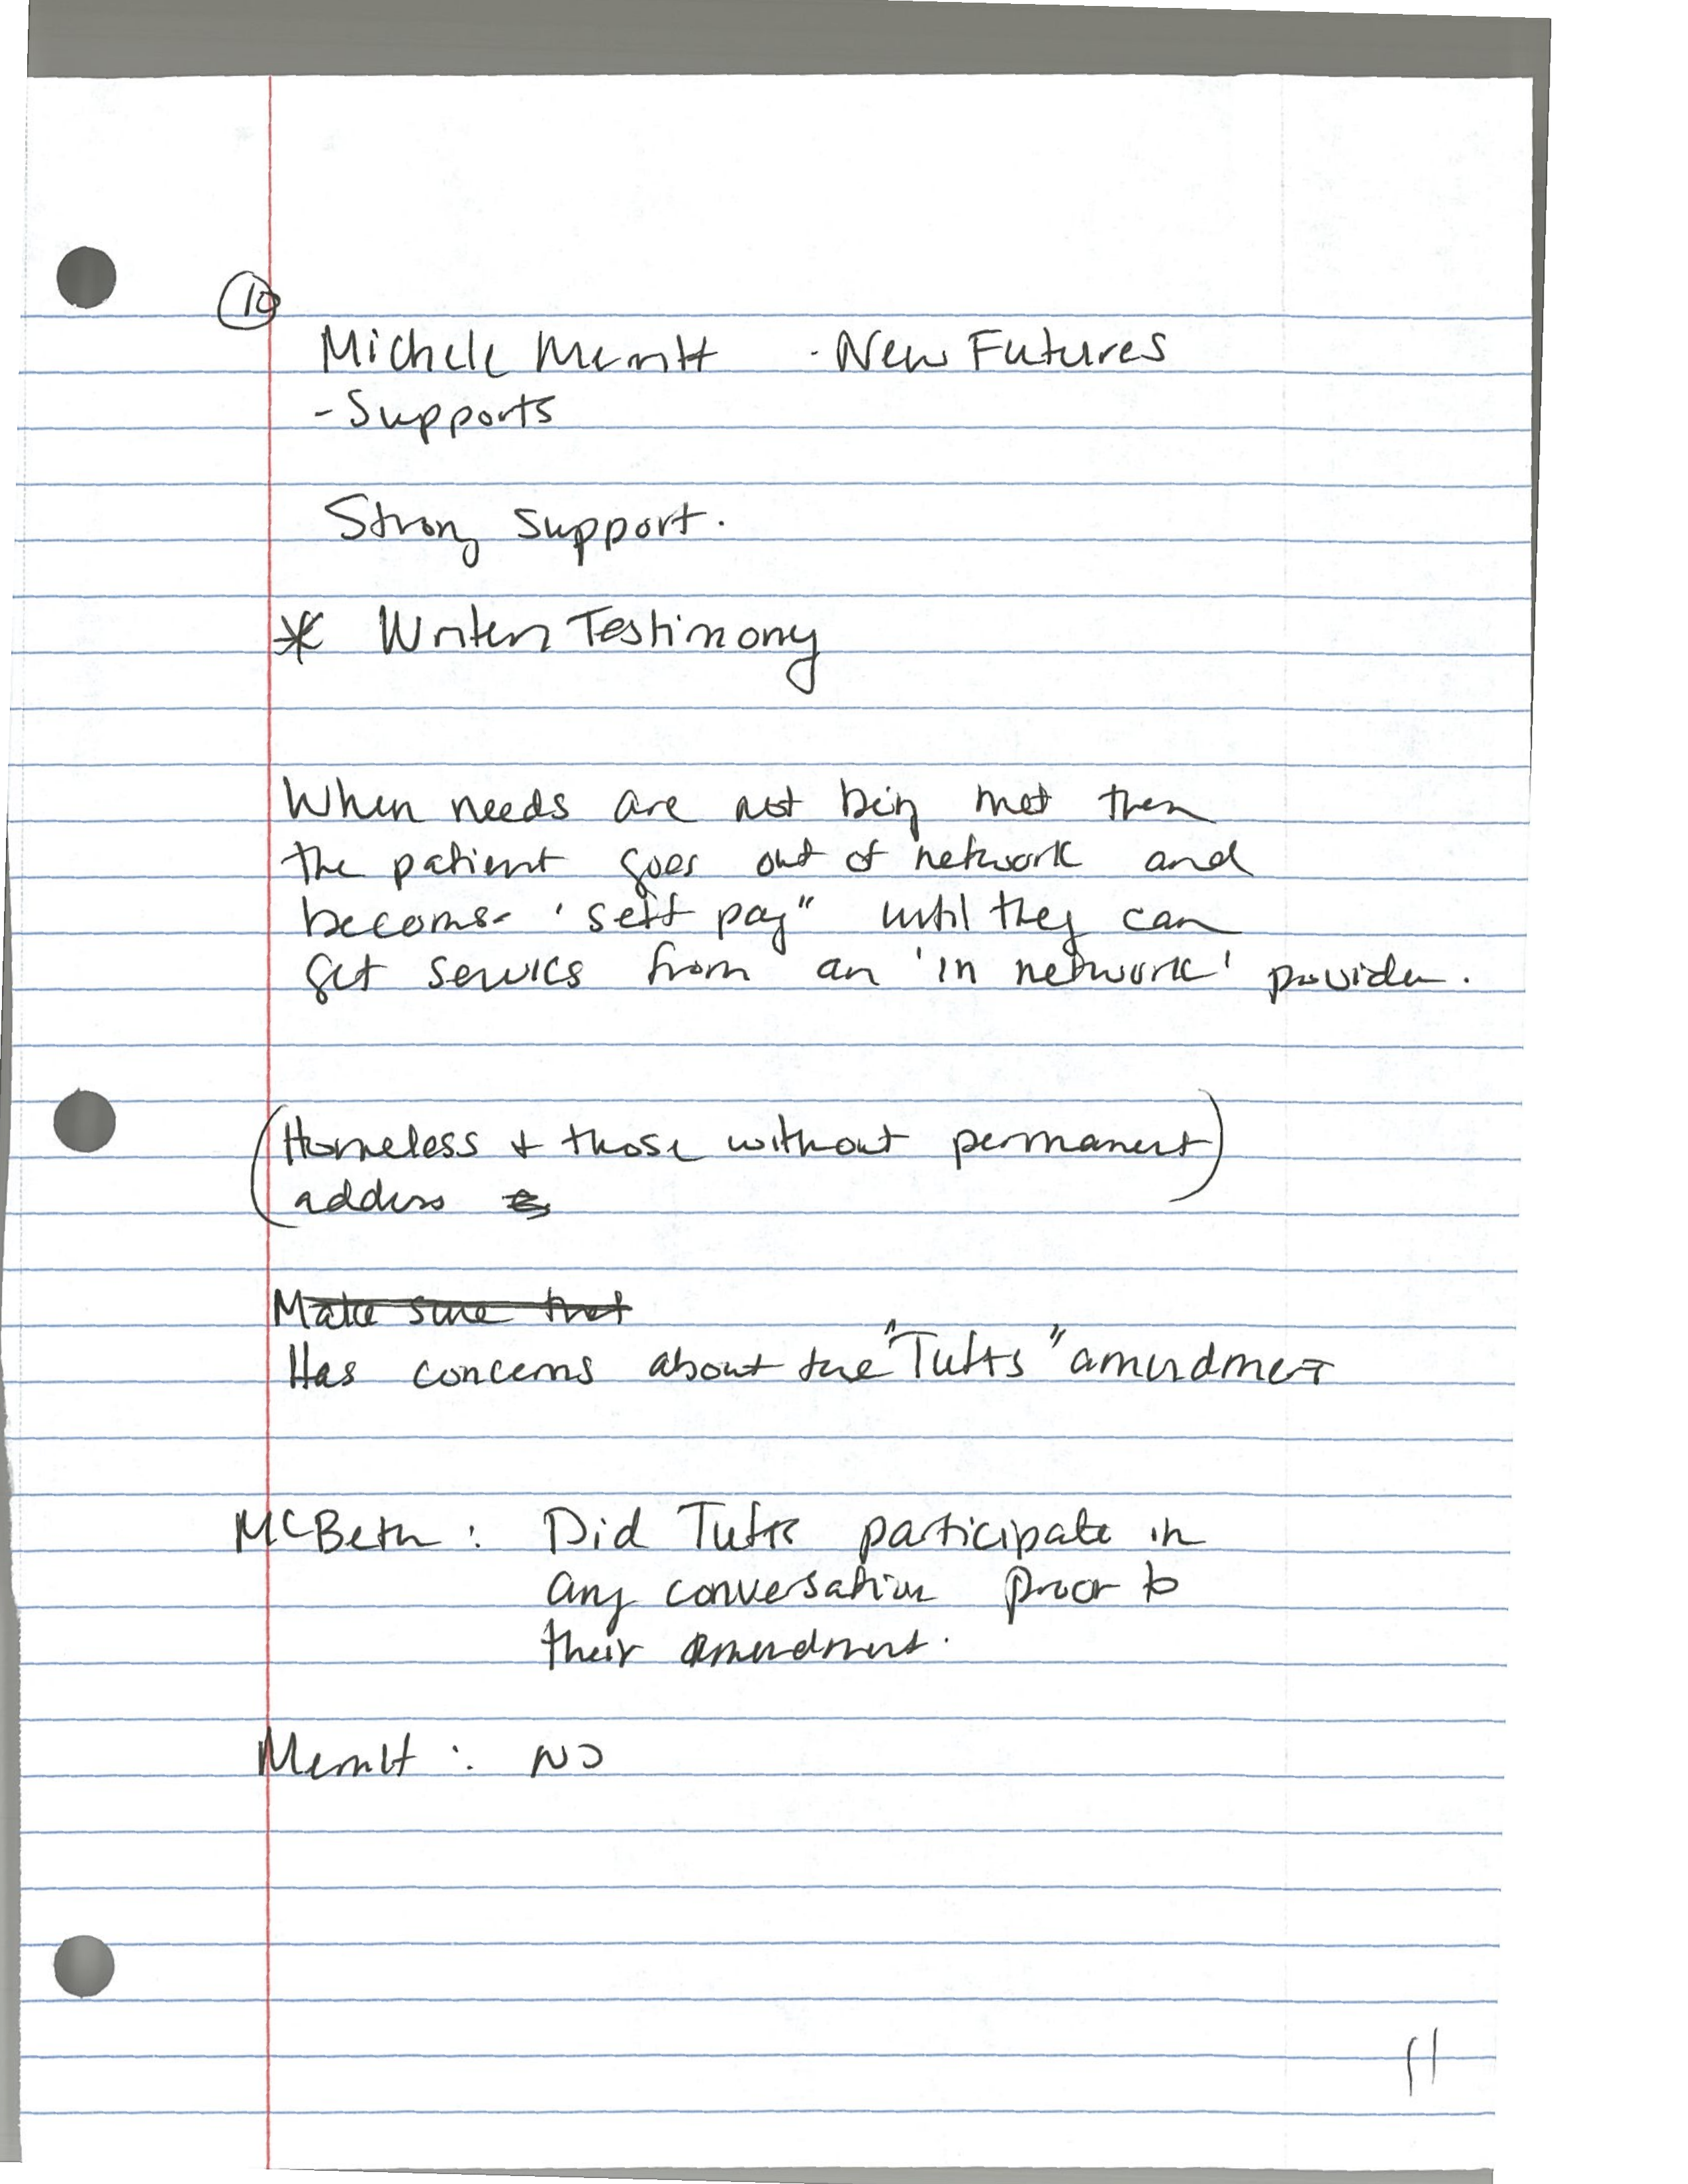 10
Michele Merritt - New Futures
- Supports
Strong support.
* Written Testimony
When needs are not being met then
the patient goes out of network and
becomes 'self pay" until they can
get services from an 'in network' provider.
(Homeless + those without permanent)
address
Make sure that
Has concerns about the "Tufts" amendment
McBeth: Did Tufts participate in
any conversation prior to
their amendment.
Merritt: NO
11